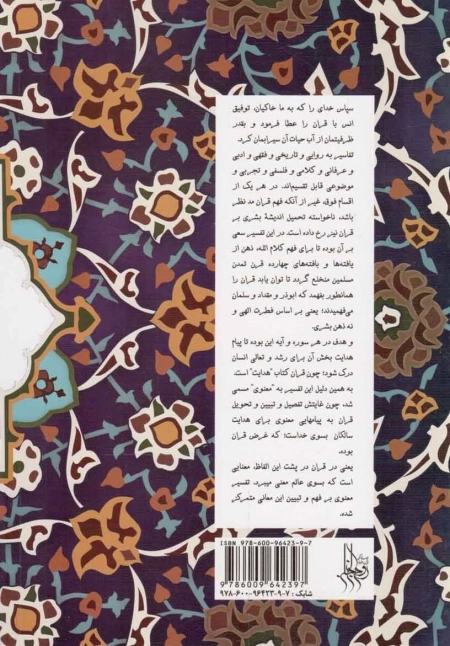 سپاس خدای را که به ما خاکیان، توفیق
انس با قران را عطا فرمود و بقدر
ظرفیتمان از آب حیات آن سیرابمان کرد.
تفاسیر به روایی و تاریخی و فقهی و ادبی
و عرفانی و کلامی و فلسفی و تجربی و
موضوعی قابل تقسیم‌اند. در هر یک از
اقسام فوق، غیر از آنکه فهم قران مد نظر
باشد، ناخواسته تحمیل اندیشهٔ بشری بر
قران نیز رخ داده است. در این تفسیر سعی
بر آن بوده تا برای فهم کلام الله، ذهن از
یافته‌ها و بافته‌های چهارده قرن تمدن
مسلمین منخلع گردد تا توان یابد قران را
همانطور بفهمد که ابوذر و مقداد و سلمان
می‌فهمیدند؛ یعنی بر اساس فطرت الهی و
نه ذهن بشری.
و هدف در هر سوره و آیه این بوده تا پیام
هدایت بخش آن برای رشد و تعالی انسان
درک شود؛ چون قران کتاب "هدایت" است.
به همین دلیل این تفسیر به "معنوی" مسمی
شد، چون غایتش تفصیل و تبیین و تحویل
قران به پیامهایی معنوی برای هدایت
سالکان بسوی خداست؛ که غرض قران
بوده.
یعنی در قران در پشت این الفاظ، معنایی
است که بسوی عالم معنی میبرد. تفسیر
معنوی بر فهم و تبیین این معانی متمرکز
شده.
ISBN 978-600-96423-9-7
9786009642397
شابک: ۹۷۸-۶۰۰-۹۶۴۲۳-۹-۷